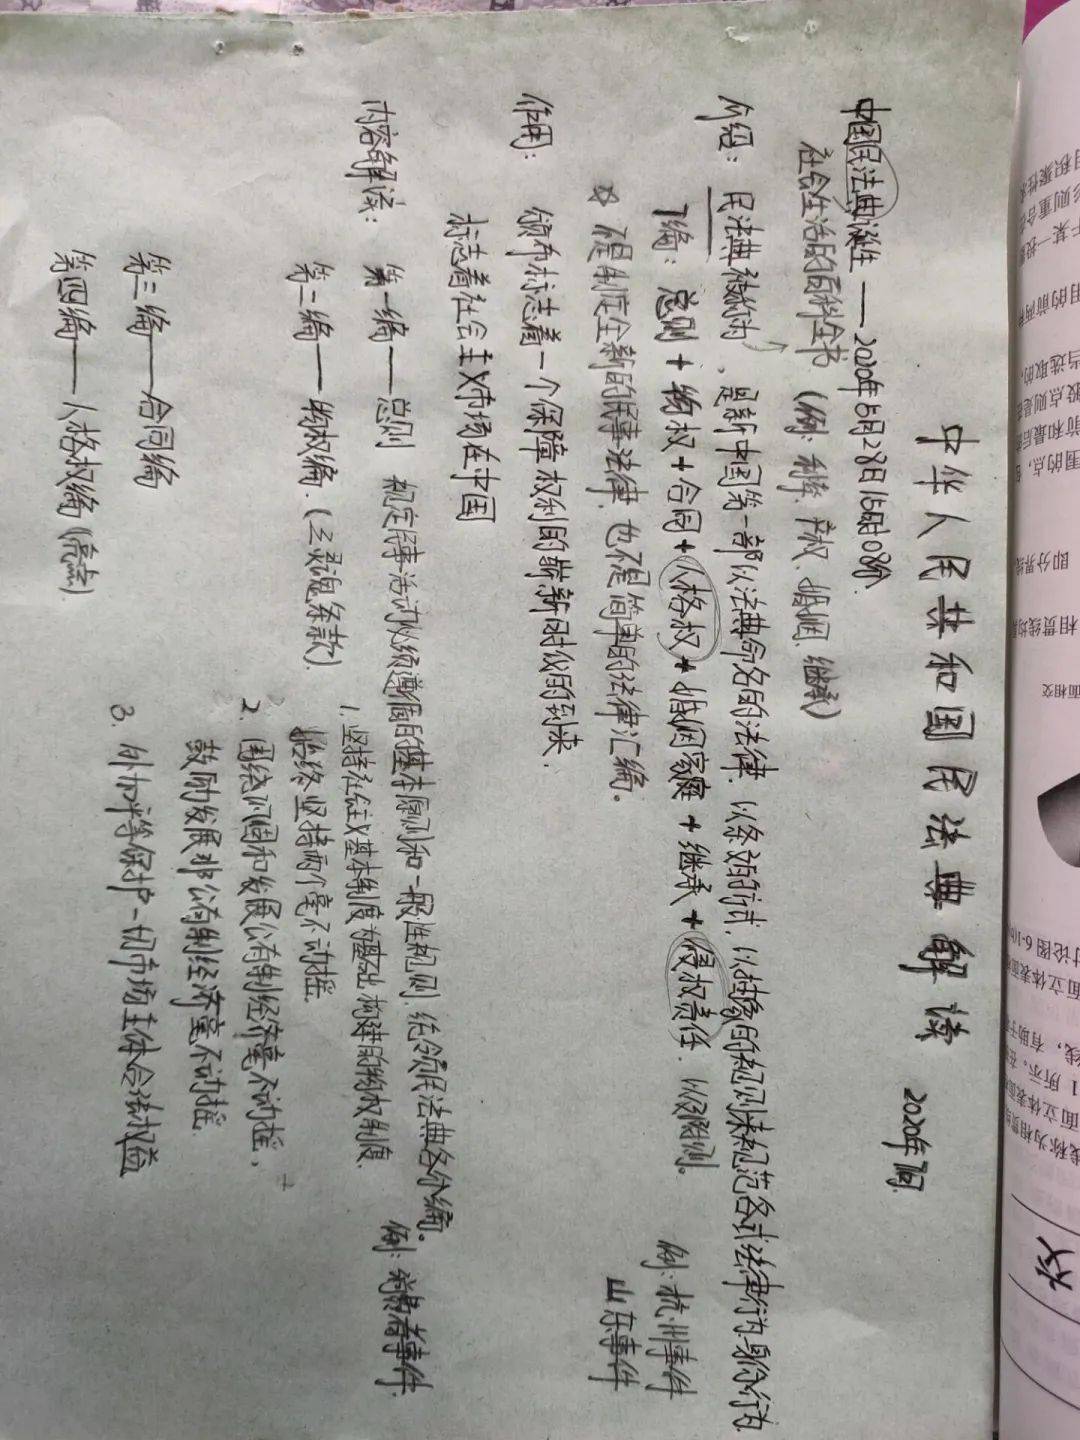 中华人民共和国民法典解读
2020年7月
中国民法典诞生——2020年5月28日15时08分.
社会生活的百科全书（例：利率、产权、婚姻、继承）
介绍：民法典被称为 ，是新中国第一部以法典命名的法律，以条文的方式，以抽象的规则来规范各式法律行为、身份行为
7编：总则+物权+合同+人格权+婚姻家庭+继承+侵权责任、以及附则。
例：杭州事件
山东事件
不是制定全新的民事法律，也不是简单的法律汇编。
作用：颁布标志着一个保障权利的崭新时代的到来.
标志着社会主义市场在中国
内容解读：第一编——总则 规定民事活动必须遵循的基本原则和一般性规则，统领民法典各分编。
第二编——物权编.（之灵魂条款）
1. 坚持社会主义基本制度为基础，构建的物权制度.
始终坚持两个毫不动摇.
例：消费者事件.
2. 围绕巩固和发展公有制经济毫不动摇，
鼓励发展非公有制经济毫不动摇.
3. 平等保护一切市场主体合法权益
第三编——合同编
第四编——人格权编（亮点）.
相交
相贯线
即分界线
讨论图6-10
面立体表面
线，有助于
1 所示。在
面立体表面
线称为相贯